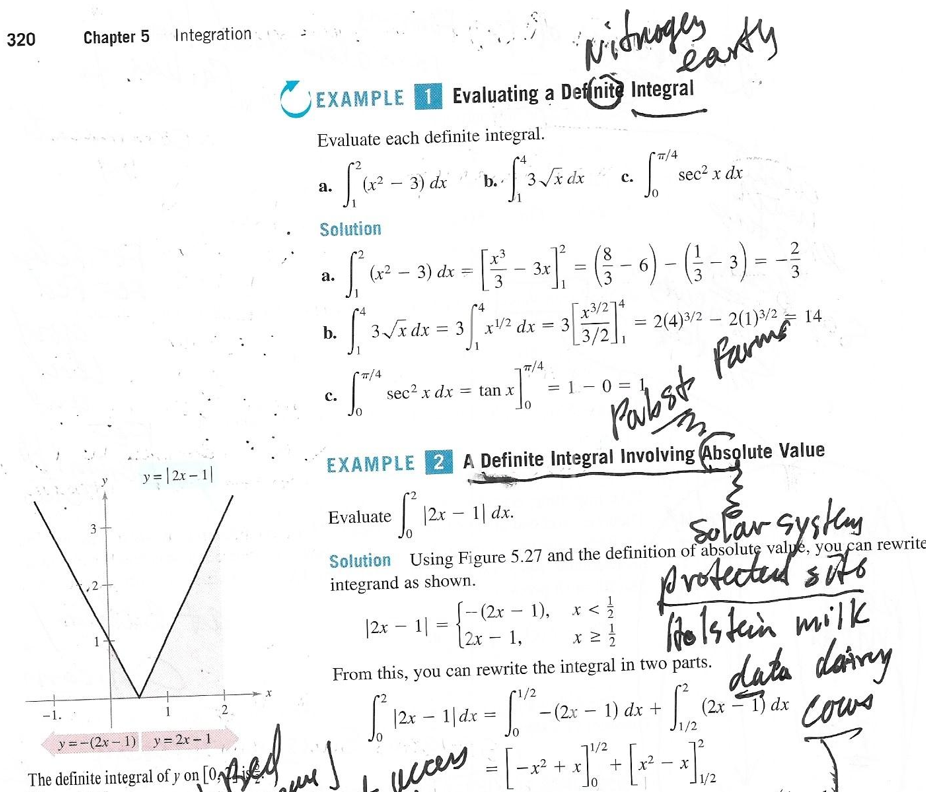 320 Chapter 5 Integration
Nitrogen
earth
EXAMPLE 1 Evaluating a Definite Integral
Evaluate each definite integral.
a. ∫₁² (x² − 3) dx b. ∫₁⁴ 3√x dx c. ∫₀^{π/4} sec² x dx
Solution
a. ∫₁² (x² − 3) dx = [x³/3 − 3x]₁² = (8/3 − 6) − (1/3 − 3) = −2/3
b. ∫₁⁴ 3√x dx = 3 ∫₁⁴ x^{1/2} dx = 3[x^{3/2}/(3/2)]₁⁴ = 2(4)^{3/2} − 2(1)^{3/2} = 14
c. ∫₀^{π/4} sec² x dx = tan x]₀^{π/4} = 1 − 0 = 1
Pabst Farms
EXAMPLE 2 A Definite Integral Involving Absolute Value
Evaluate ∫₀² |2x − 1| dx.
Solar system
Solution Using Figure 5.27 and the definition of absolute value, you can rewrite
integrand as shown.
protected
|2x − 1| = { −(2x − 1), x < 1/2
2x − 1, x ≥ 1/2
Holstein milk
From this, you can rewrite the integral in two parts.
data dairy
cows
∫₀² |2x − 1| dx = ∫₀^{1/2} −(2x − 1) dx + ∫_{1/2}² (2x − 1) dx
= [−x² + x]₀^{1/2} + [x² − x]_{1/2}²
y = |2x − 1|
y
3
2
1
−1 1 2 x
y = −(2x − 1) y = 2x − 1
The definite integral of y on [0,
access